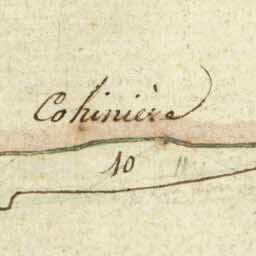 Cohinière
10